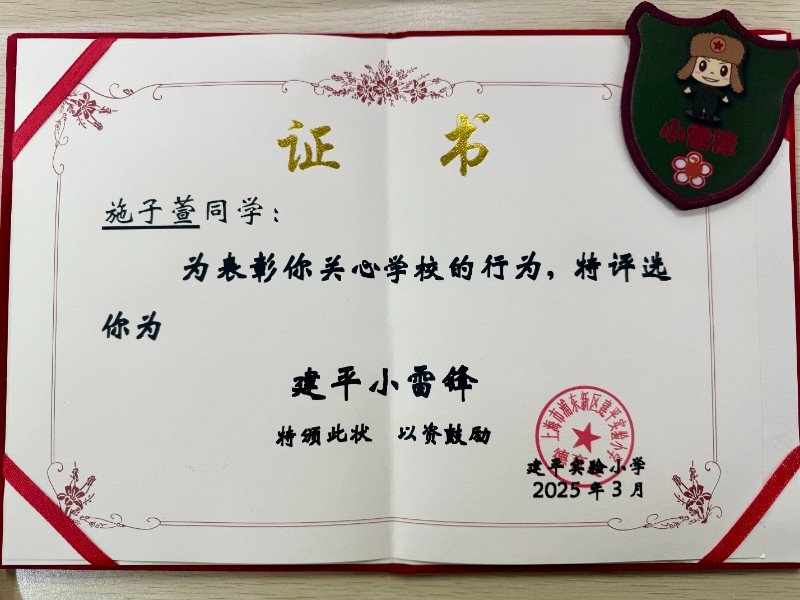 证书
小雷锋
施子萱同学：
为表彰你关心学校的行为，特评选
你为
建平小雷锋
特颁此状 以资鼓励
上海市浦东新区建平实验小学
建平实验小学
2025年3月